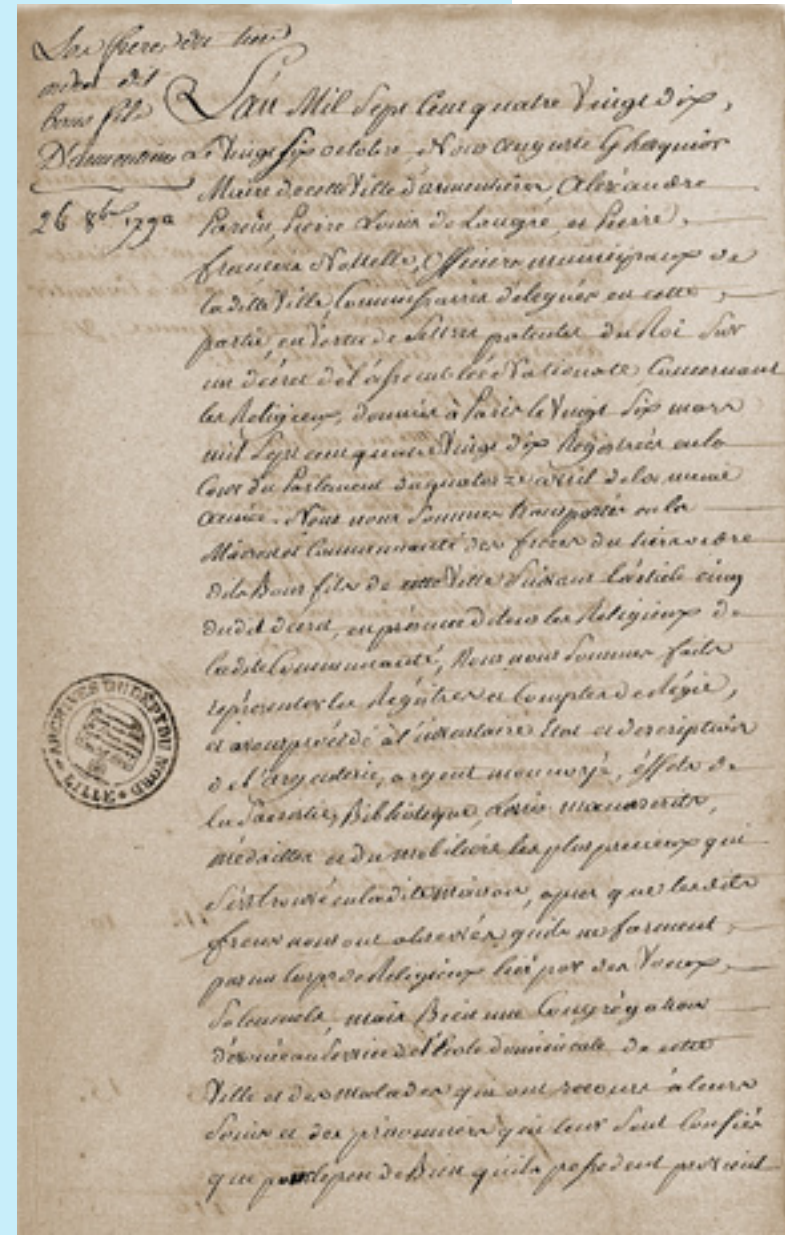 Les freres du tiers
ordre dit
bons fils
D'armentieres
26 8bre 1790
L'an Mil Sept Cent quatre Vingt dix,
Le Vingt Six octobre, Nous auguste Ghesquier
Maire de cette Ville d'armentieres, Alexandre
Parent, Pierre Louis de Langre, et Pierre
francois Nottelle, Officiers municipaux de
ladite Ville, Commissaires delegués en cette
partie, en Vertu de Lettres patentes du Roi Sur
un décret de l'assemblée Nationale, Concernant
les Religieux, données à Paris le Vingt Six mars
mil Sept cent quatre Vingt dix Registrées en la
Cour du Parlement du quatorze avril de la meme
année. Nous nous Sommes transportés en la
Maison et Communauté des freres du tiers ordre
dits Bons fils de cette Ville Suivant l'article cinq
dudit décret, en présence de tous les Religieux de
ladite Communauté, Nous nous Sommes faits
représenter les Régistres et Comptes de Régie,
et avons procédé à l'inventaire Etat et description
de l'argenterie, argent monnoyé, éffets de
la Sacristie, Biblioteque, Livres manuscrits,
médailles et du mobiliaire les plus precieux qui
S'est trouvé en ladite maison, apres que lesdits
freres nous ont observés, quils ne forment
pas un Corps de Religieux lié par des Voeux
Solennels, mais Bien une Congrégation
dévouée au Service de l'Ecole dominicale de cette
Ville et des malades qui ont recours à leurs
Soins et des prisonniers qui leur Sont Confiés
que le peu de Bien quils possedent provient
ARCHIVES DU DEPT DU NORD
LILLE